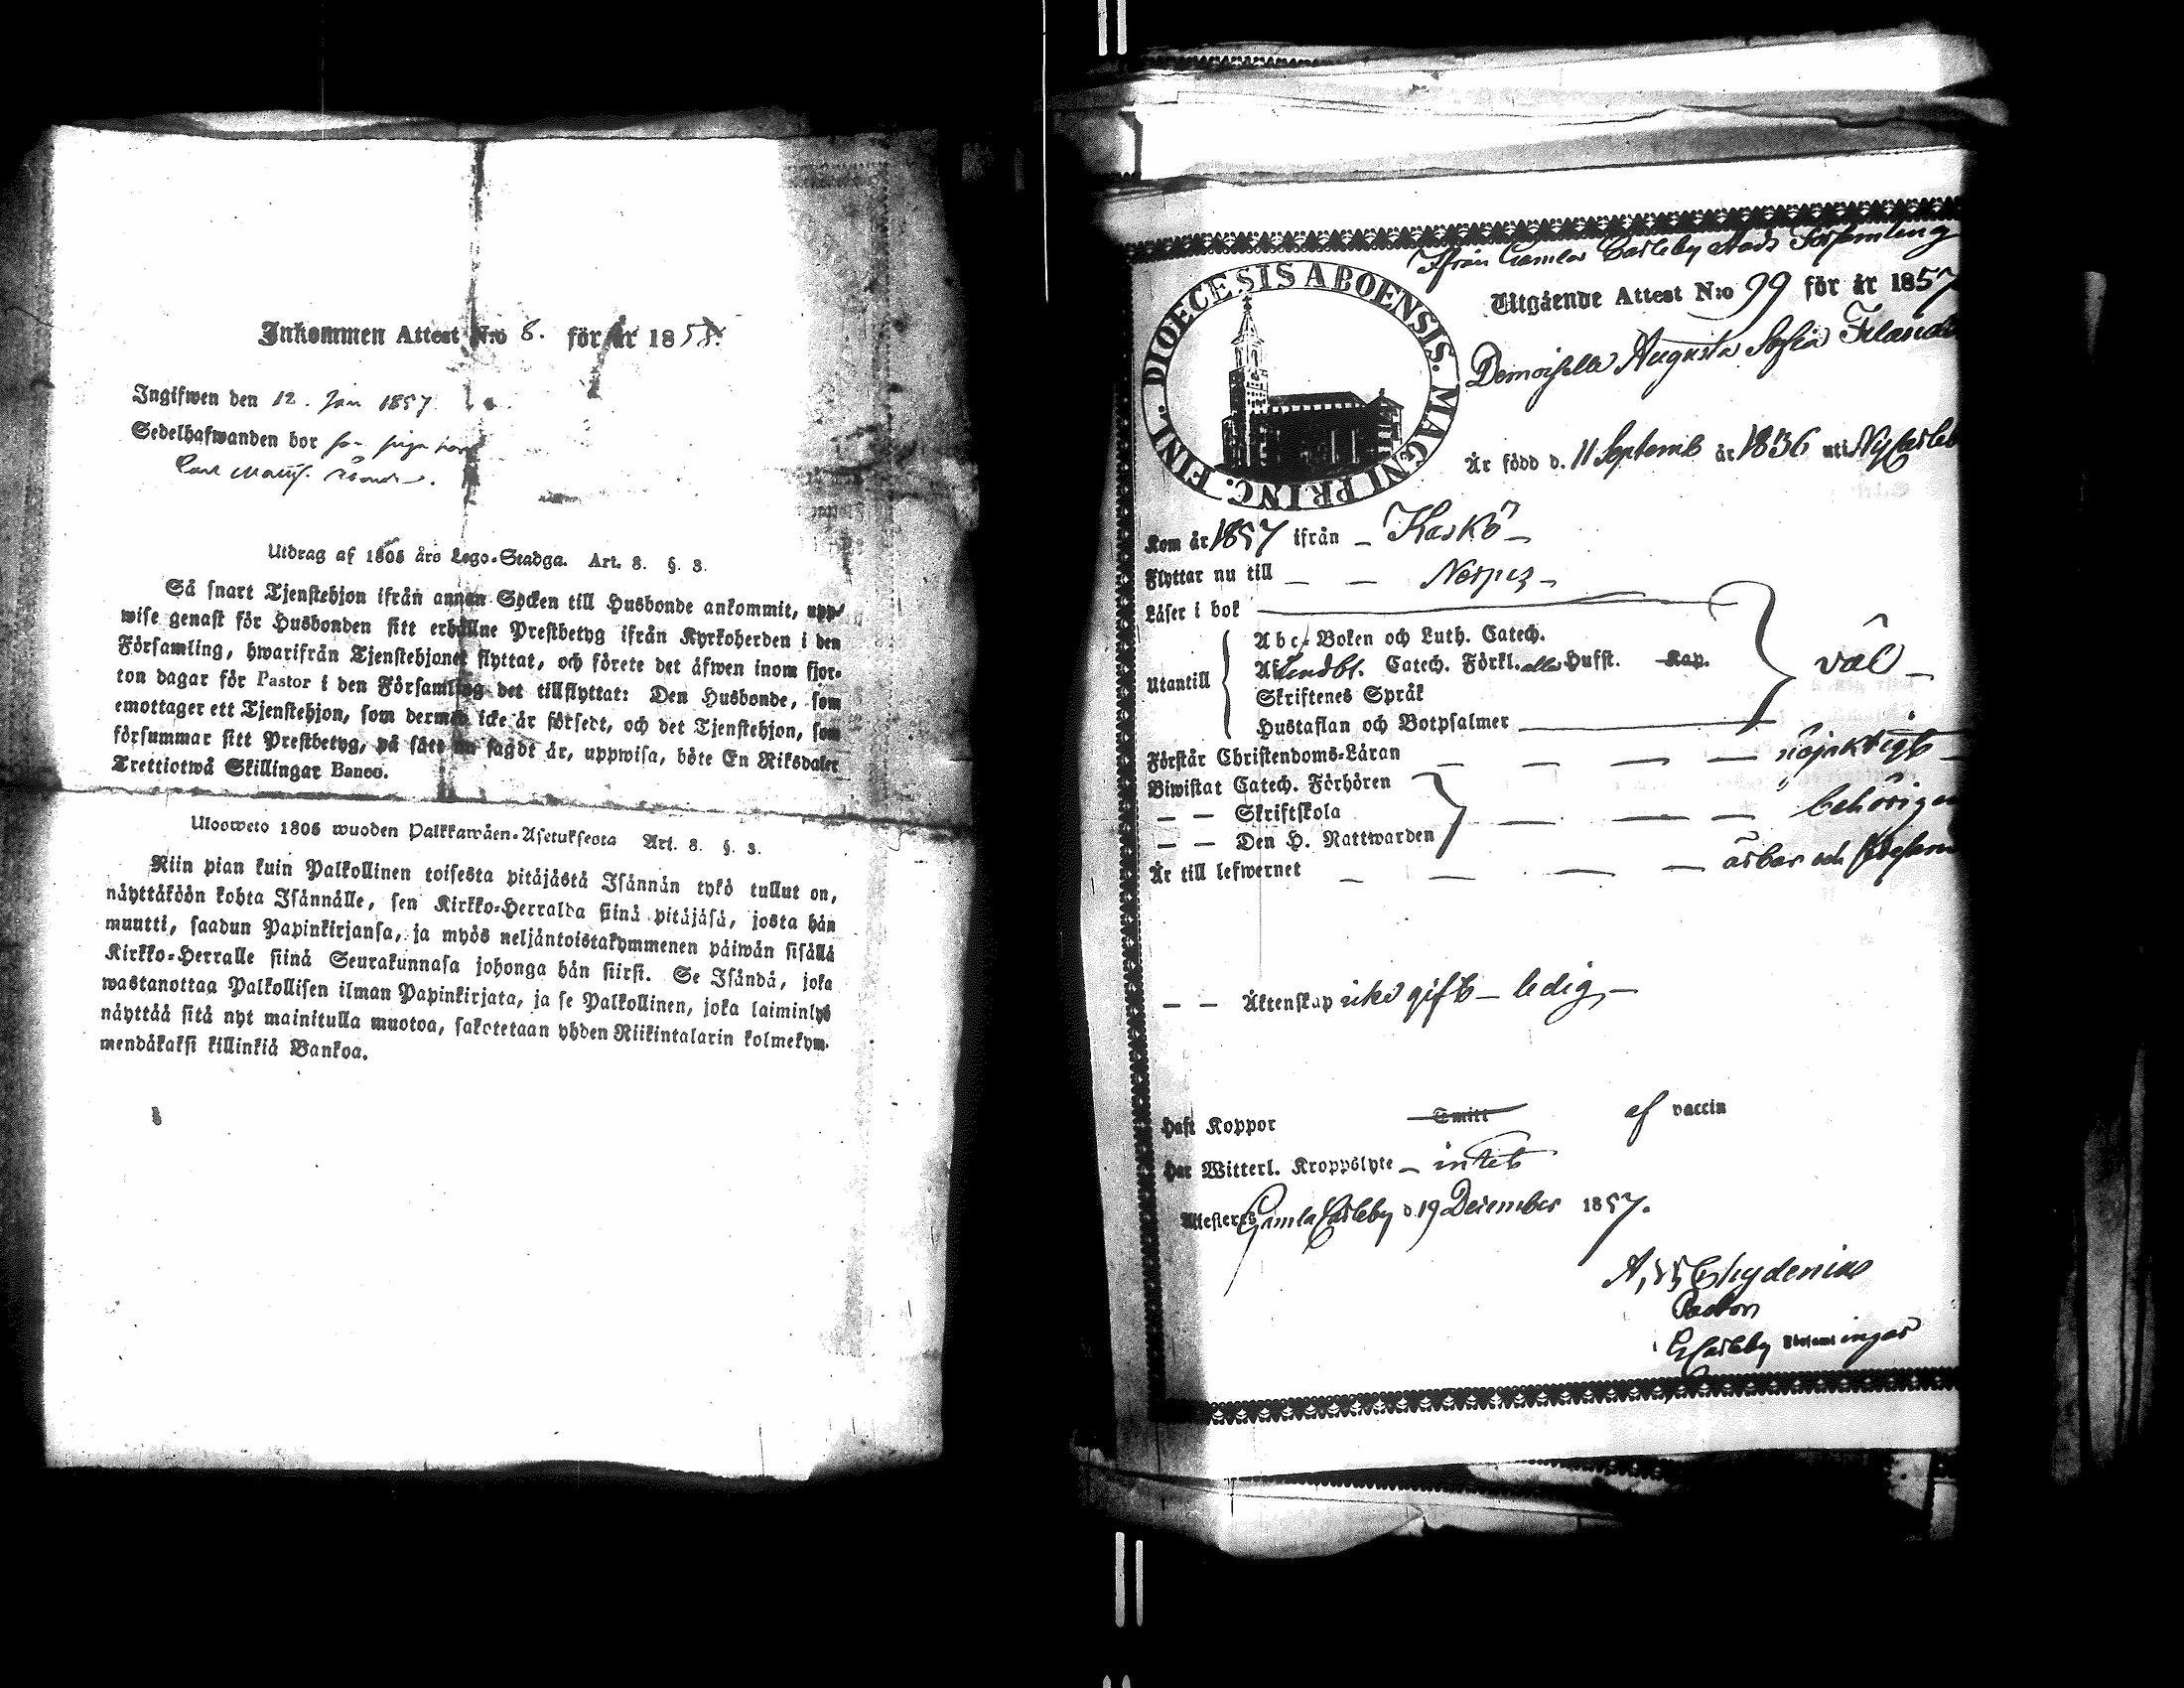 Inkommen Attest N:o 8. för år 1858.
Ingifwen den 12. Jan 1857
Sedelhafwanden bor
Carl
Utdrag af 1805 års Lego-Stadga. Art. 8. §. 3.
Så snart Tjenstehjon ifrån annan Socken till Husbonde ankommit, upp-
wise genast för Husbonden sitt erhållne Prestbetyg ifrån Kyrkoherden i den
Församling, hwarifrån Tjenstehjonet flyttat, och förete det äfwen inom fjor-
ton dagar för Pastor i den Församling det tillflyttat: Den Husbonde, som
emottager ett Tjenstehjon, som dermed icke är försedt, och det Tjenstehjon, som
försummar sitt Prestbetyg, på sätt nu sagdt är, uppwisa, böte En Riksdaler
Trettiotwå Skillingar Banco.
Ulosweto 1805 wuoden Palkkawäen-Asetuksesta Art. 8. §. 3.
Niin pian kuin Palkollinen toisesta pitäjästä Isännän tykö tullut on,
näyttäköön kohta Isännälle, sen Kirkko-Herralda siinä pitäjäsä, josta hän
muutti, saadun Papinkirjansa, ja myös neljäntoistakymmenen päiwän sisällä
Kirkko-Herralle siinä Seurakunnasa johonga hän siirsi. Se Isändä, joka
wastanottaa Palkollisen ilman Papinkirjata, ja se Palkollinen, joka laiminlyö
näyttää sitä nyt mainitulla muotoa, sakotetaan yhden Riikintalarin kolmekym-
mendäkaksi killinkiä Bankoa.
Ifrån Gamla Carleby Stads Församling
DIOECESIS ABOENSIS. MAGNI PRINC. FINL.
Utgående Attest N:o 99 för år 1857
Demoiselle Augusta Sofia
Är född d. 11 Septemb år 1836 uti NyCarleb
Kom år 1857 ifrån – Kaskö –
Flyttar nu till – – Nerpes –
Läser i bok
Utantill
Abc-Boken och Luth. Catech.
Catech. Förkl. Husst. Kap. väl –
Skriftenes Språk
Hustaflan och Botpsalmer
Förstår Christendoms-Läran – – – – nöjaktigt –
Biwistat Catech. Förhören
– – Skriftskola – – – behörigen
– – Den H. Nattwarden
Är till lefwernet – – – – ärbar och
– – Äktenskap icke gift – ledig, –
Haft Koppor Smitt af vaccin
Har Witterl. Kroppslyte – intet
Attesteras Gamla Carleby d. 19 December 1857.
Chydenius
Pastor
GCarleby Församlingar